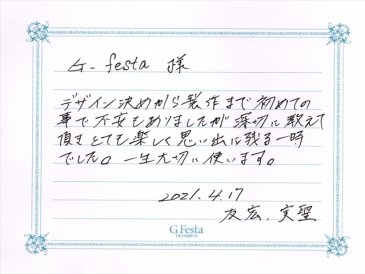 G-festa 様
デザイン決めから製作まで初めての
事で不安もありましたが深切に教えて
頂きとても楽しく思い出に残る一時
でした。一生大切に使います。
2021.4.17
友宏、実聖
G.Festa